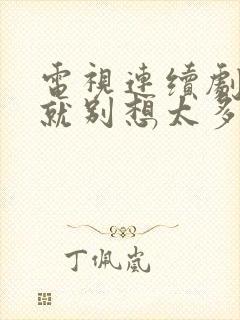 電視連續劇
就別想太多
丁佩嵐